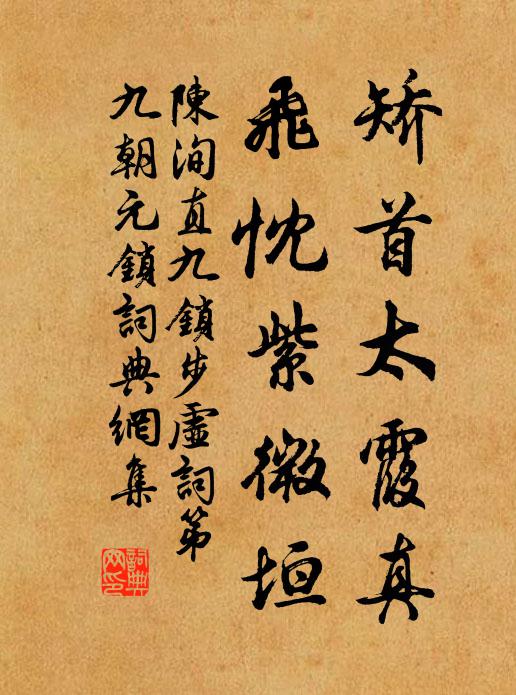 矯首太霞真
飛忱紫微垣
陳洵直九鎖步虛詞第
九朝元鎖詞典網集
詞典网印